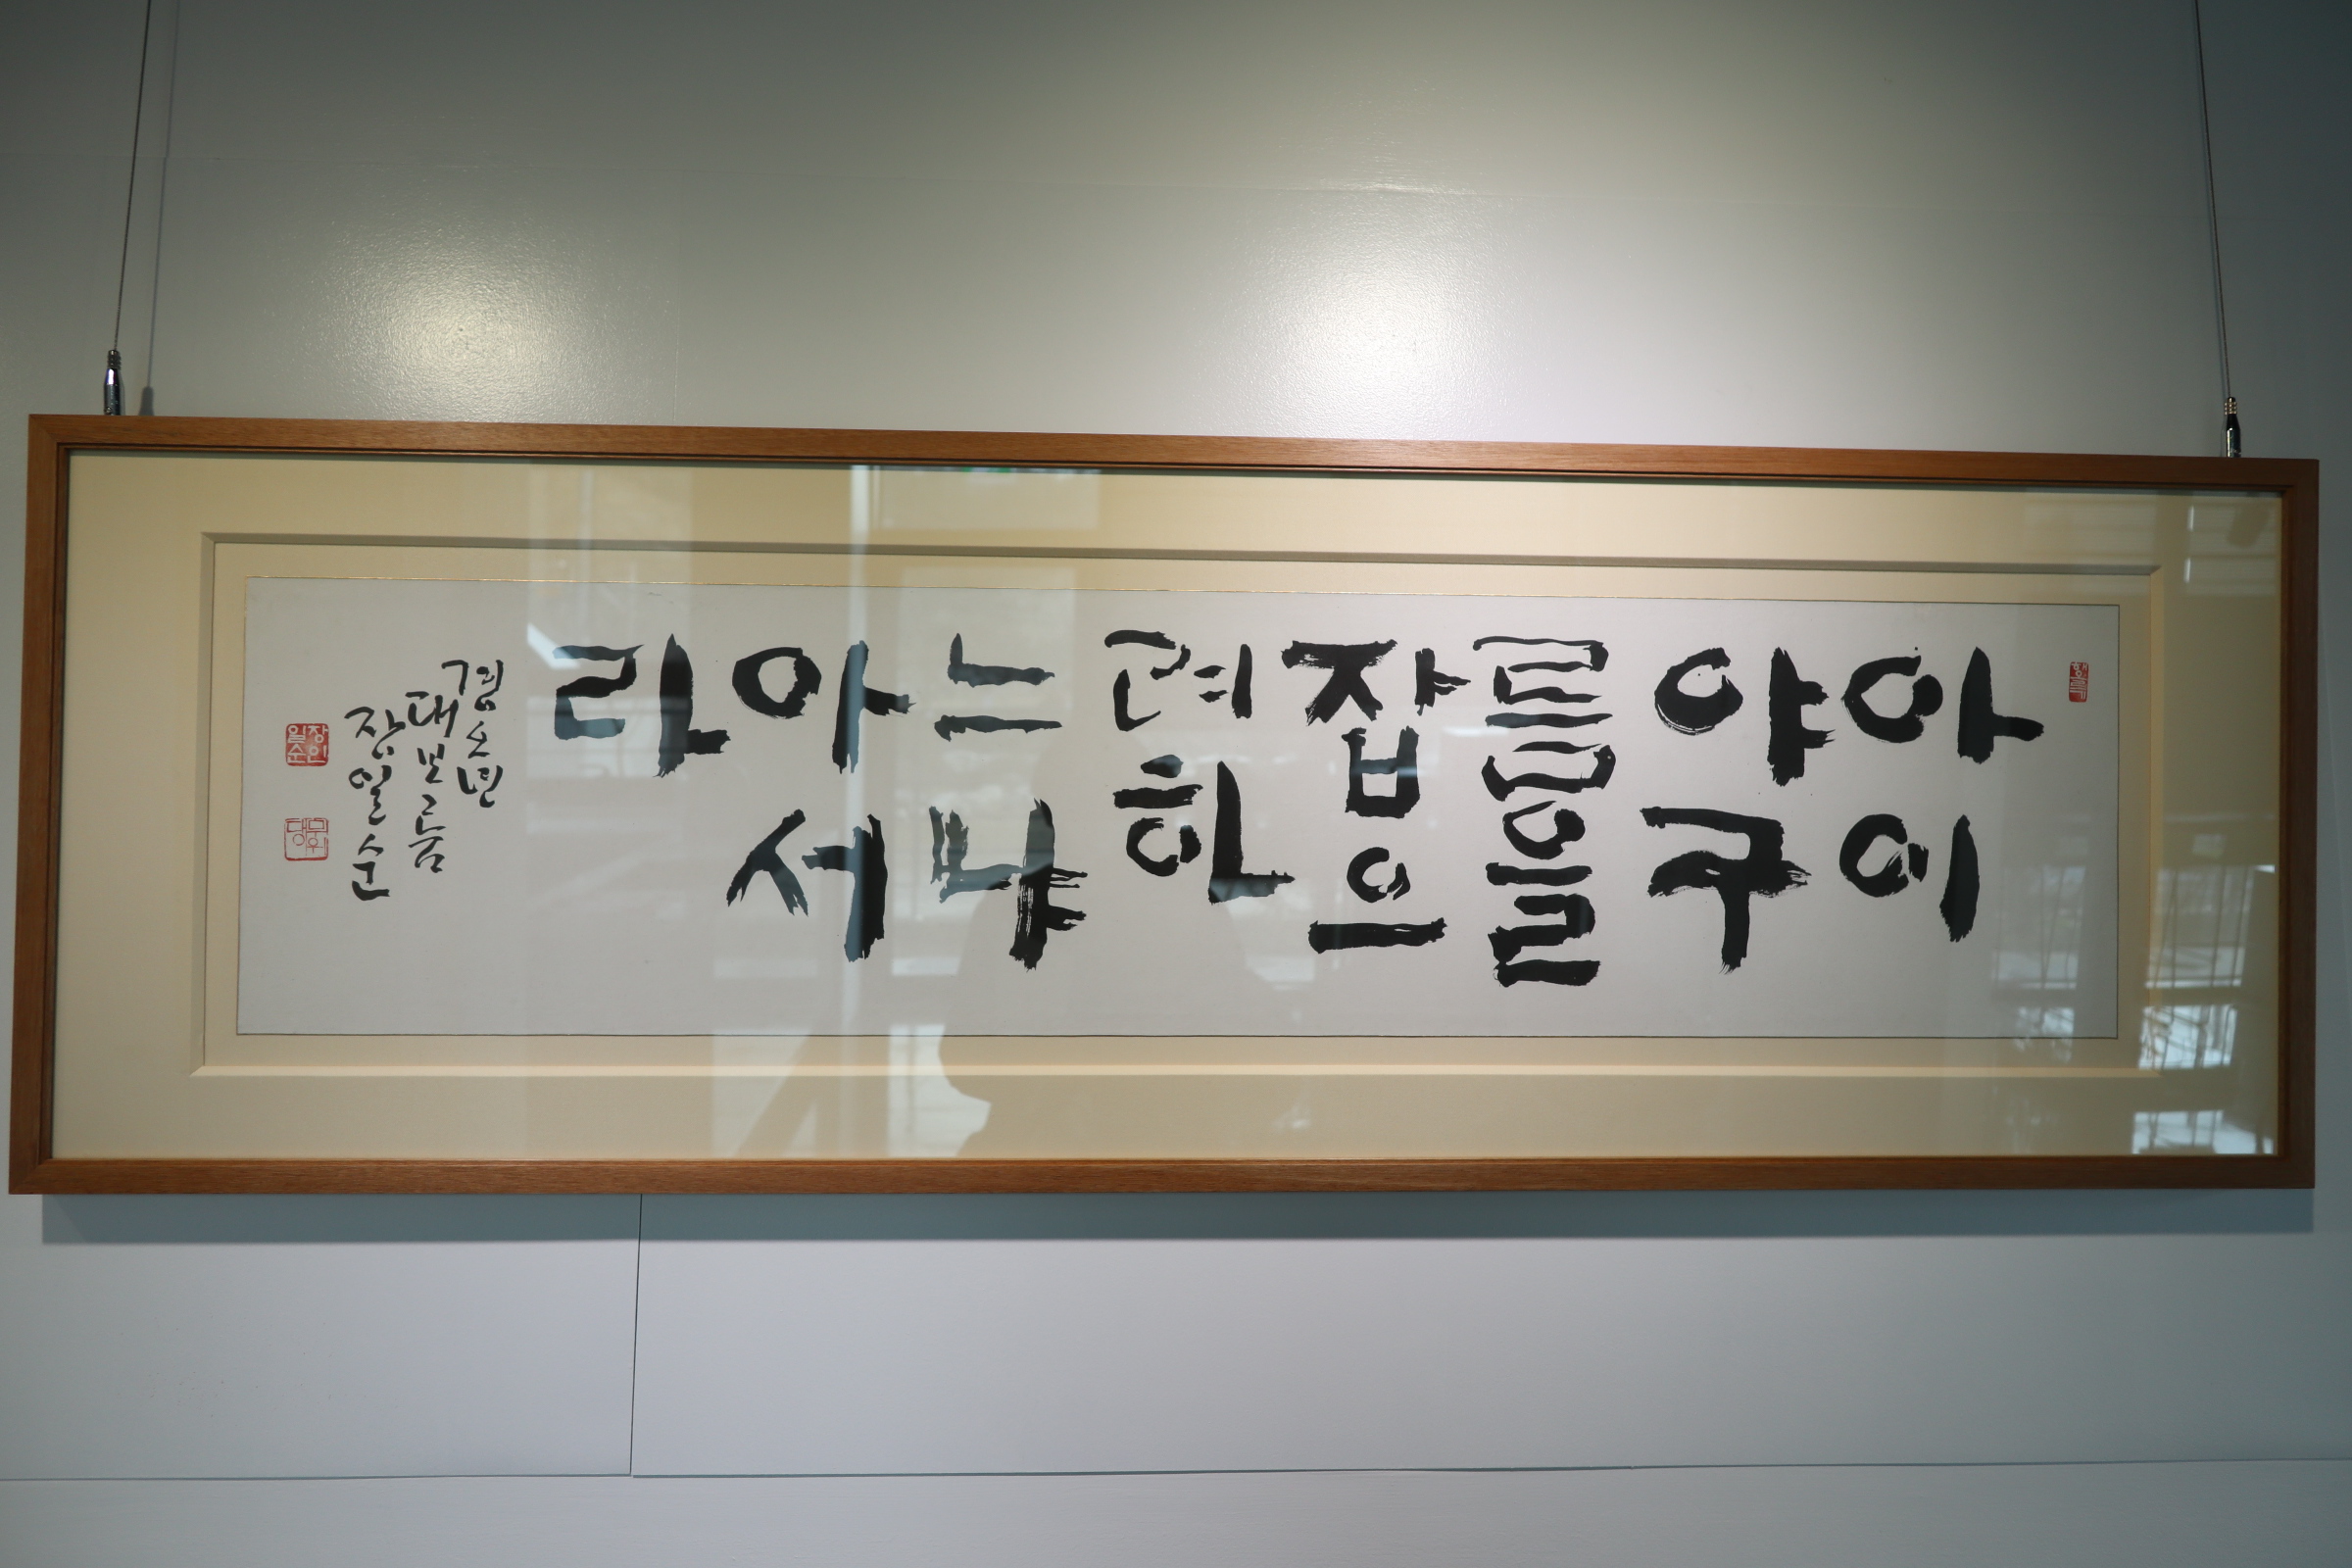 아이
야구
름을
잡으
려하
느냐
아서
라
경오년
대보름
장일순
장인
일순
무위
당